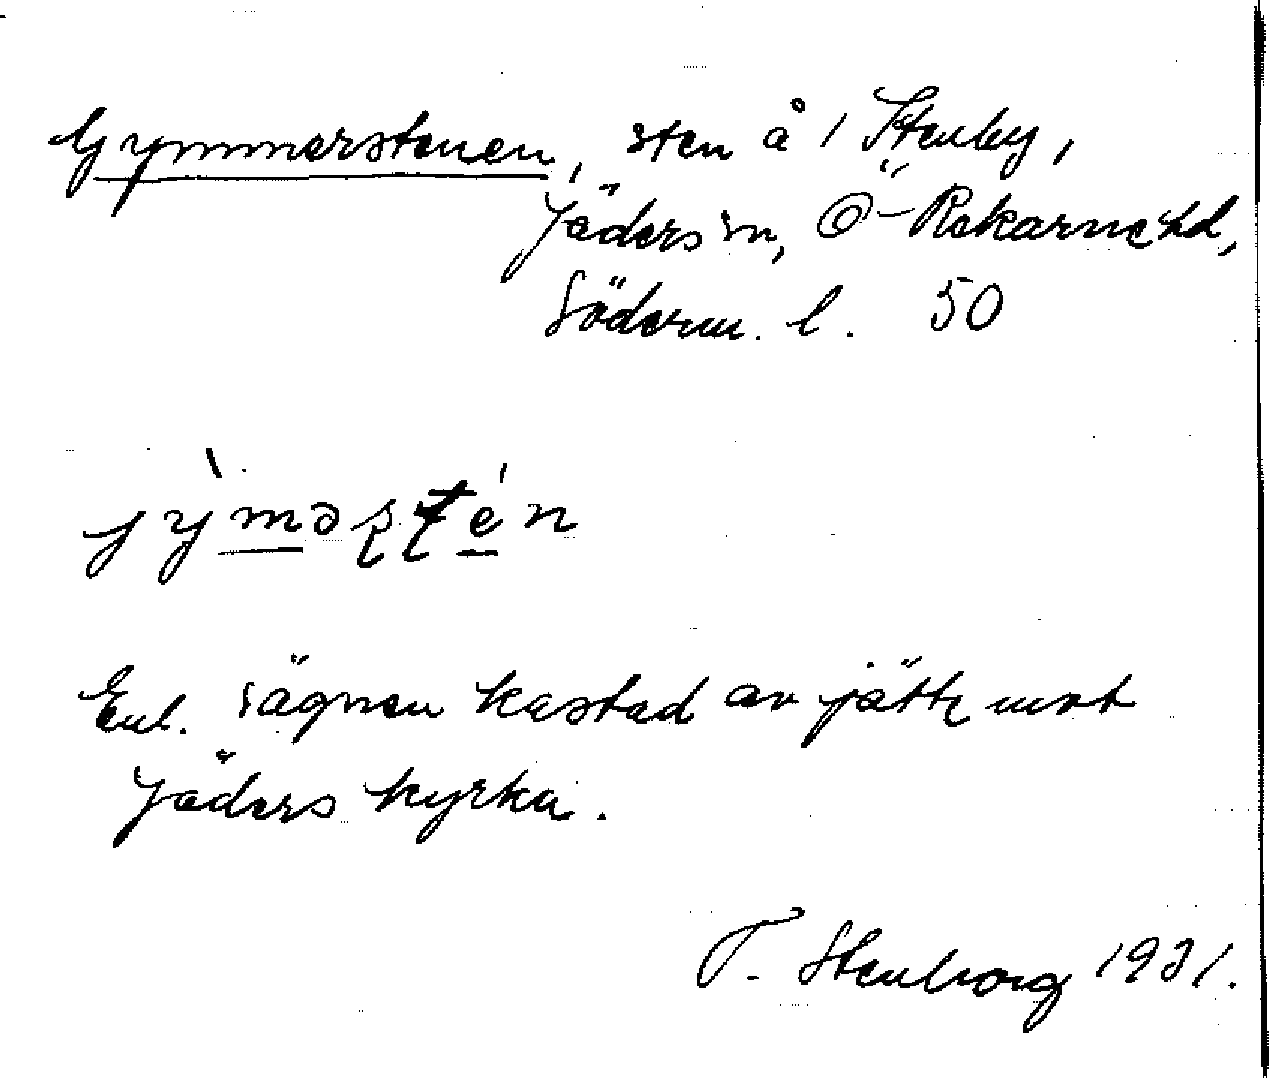 Gymmerstenen, sten å 1 Stenby,
Jäders sn, Ö-Rekarne hd,
Söderm. l. 50
jỳmǝʂʈén
Enl. sägnen kastad av jätte mot
Jäders kyrka.
T. Stenborg 1931.